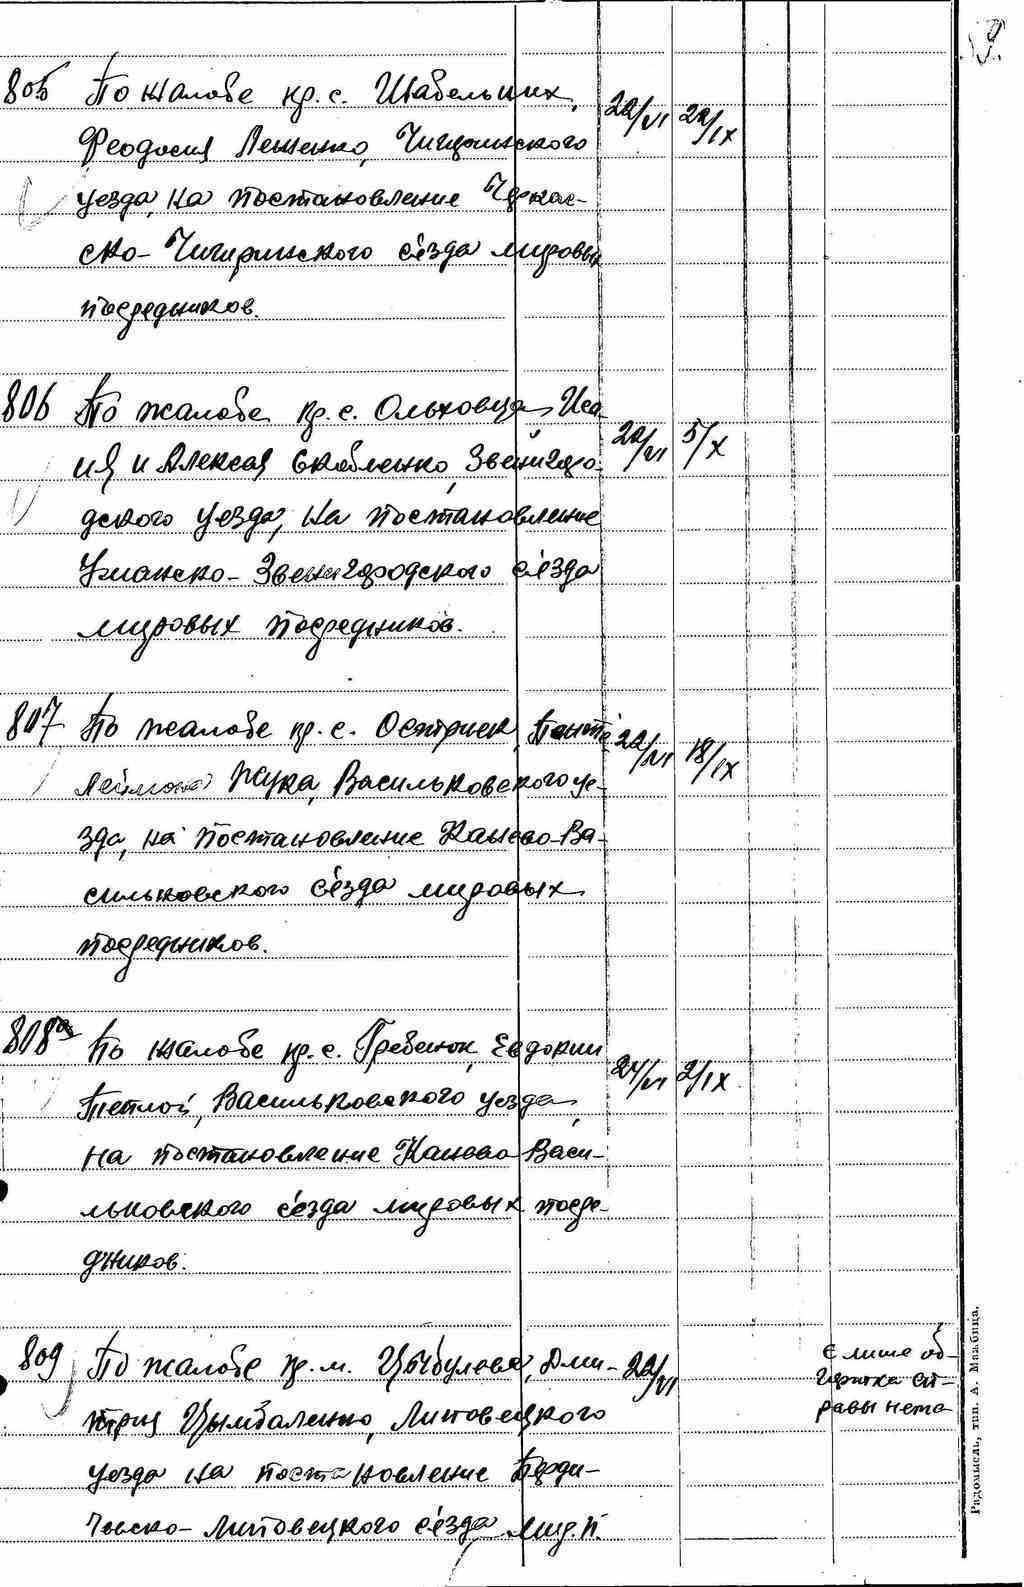 805 По жалобе кр. с. Шабельник, 22/VI 22/IX
Феодосия Лещенко, Чигиринского
уезда, на постановление Черкас-
ско-Чигиринского с'езда мировых
посредников.
806 По жалобе кр. с. Ольховца, Иса- 22/VI 5/X
ия и Алексея Скобленко, Звенигоро-
дского уезда, на постановление
Уманско-Звенигородского с'езда
мировых посредников.
807 По жалобе кр. с. Острик, Панте- 22/VI 18/IX
леймона Жука, Васильковского уе-
зда, на постановление Канево-Ва-
сильковского с'езда мировых
посредников.
808а По жалобе кр. с. Гребенок, Евдокии 24/VI 2/IX
Теплой, Васильковского уезда,
на постановление Канево-Васи-
льковского с'езда мировых посре-
дников.
809 По жалобе кр. м. Цыбулева, Дми- 22/VI Є лише об-
трия Цымбаленко, Липовецкого гортка сп-
равы нема
уезда на постановление Берди-
чевско-Липовецкого с'езда мир. п.
Радомысль, тип. А. Мажбица.